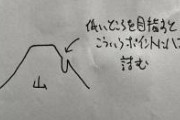 低いところを目指すと
こういうポイントにハマって
詰む
山